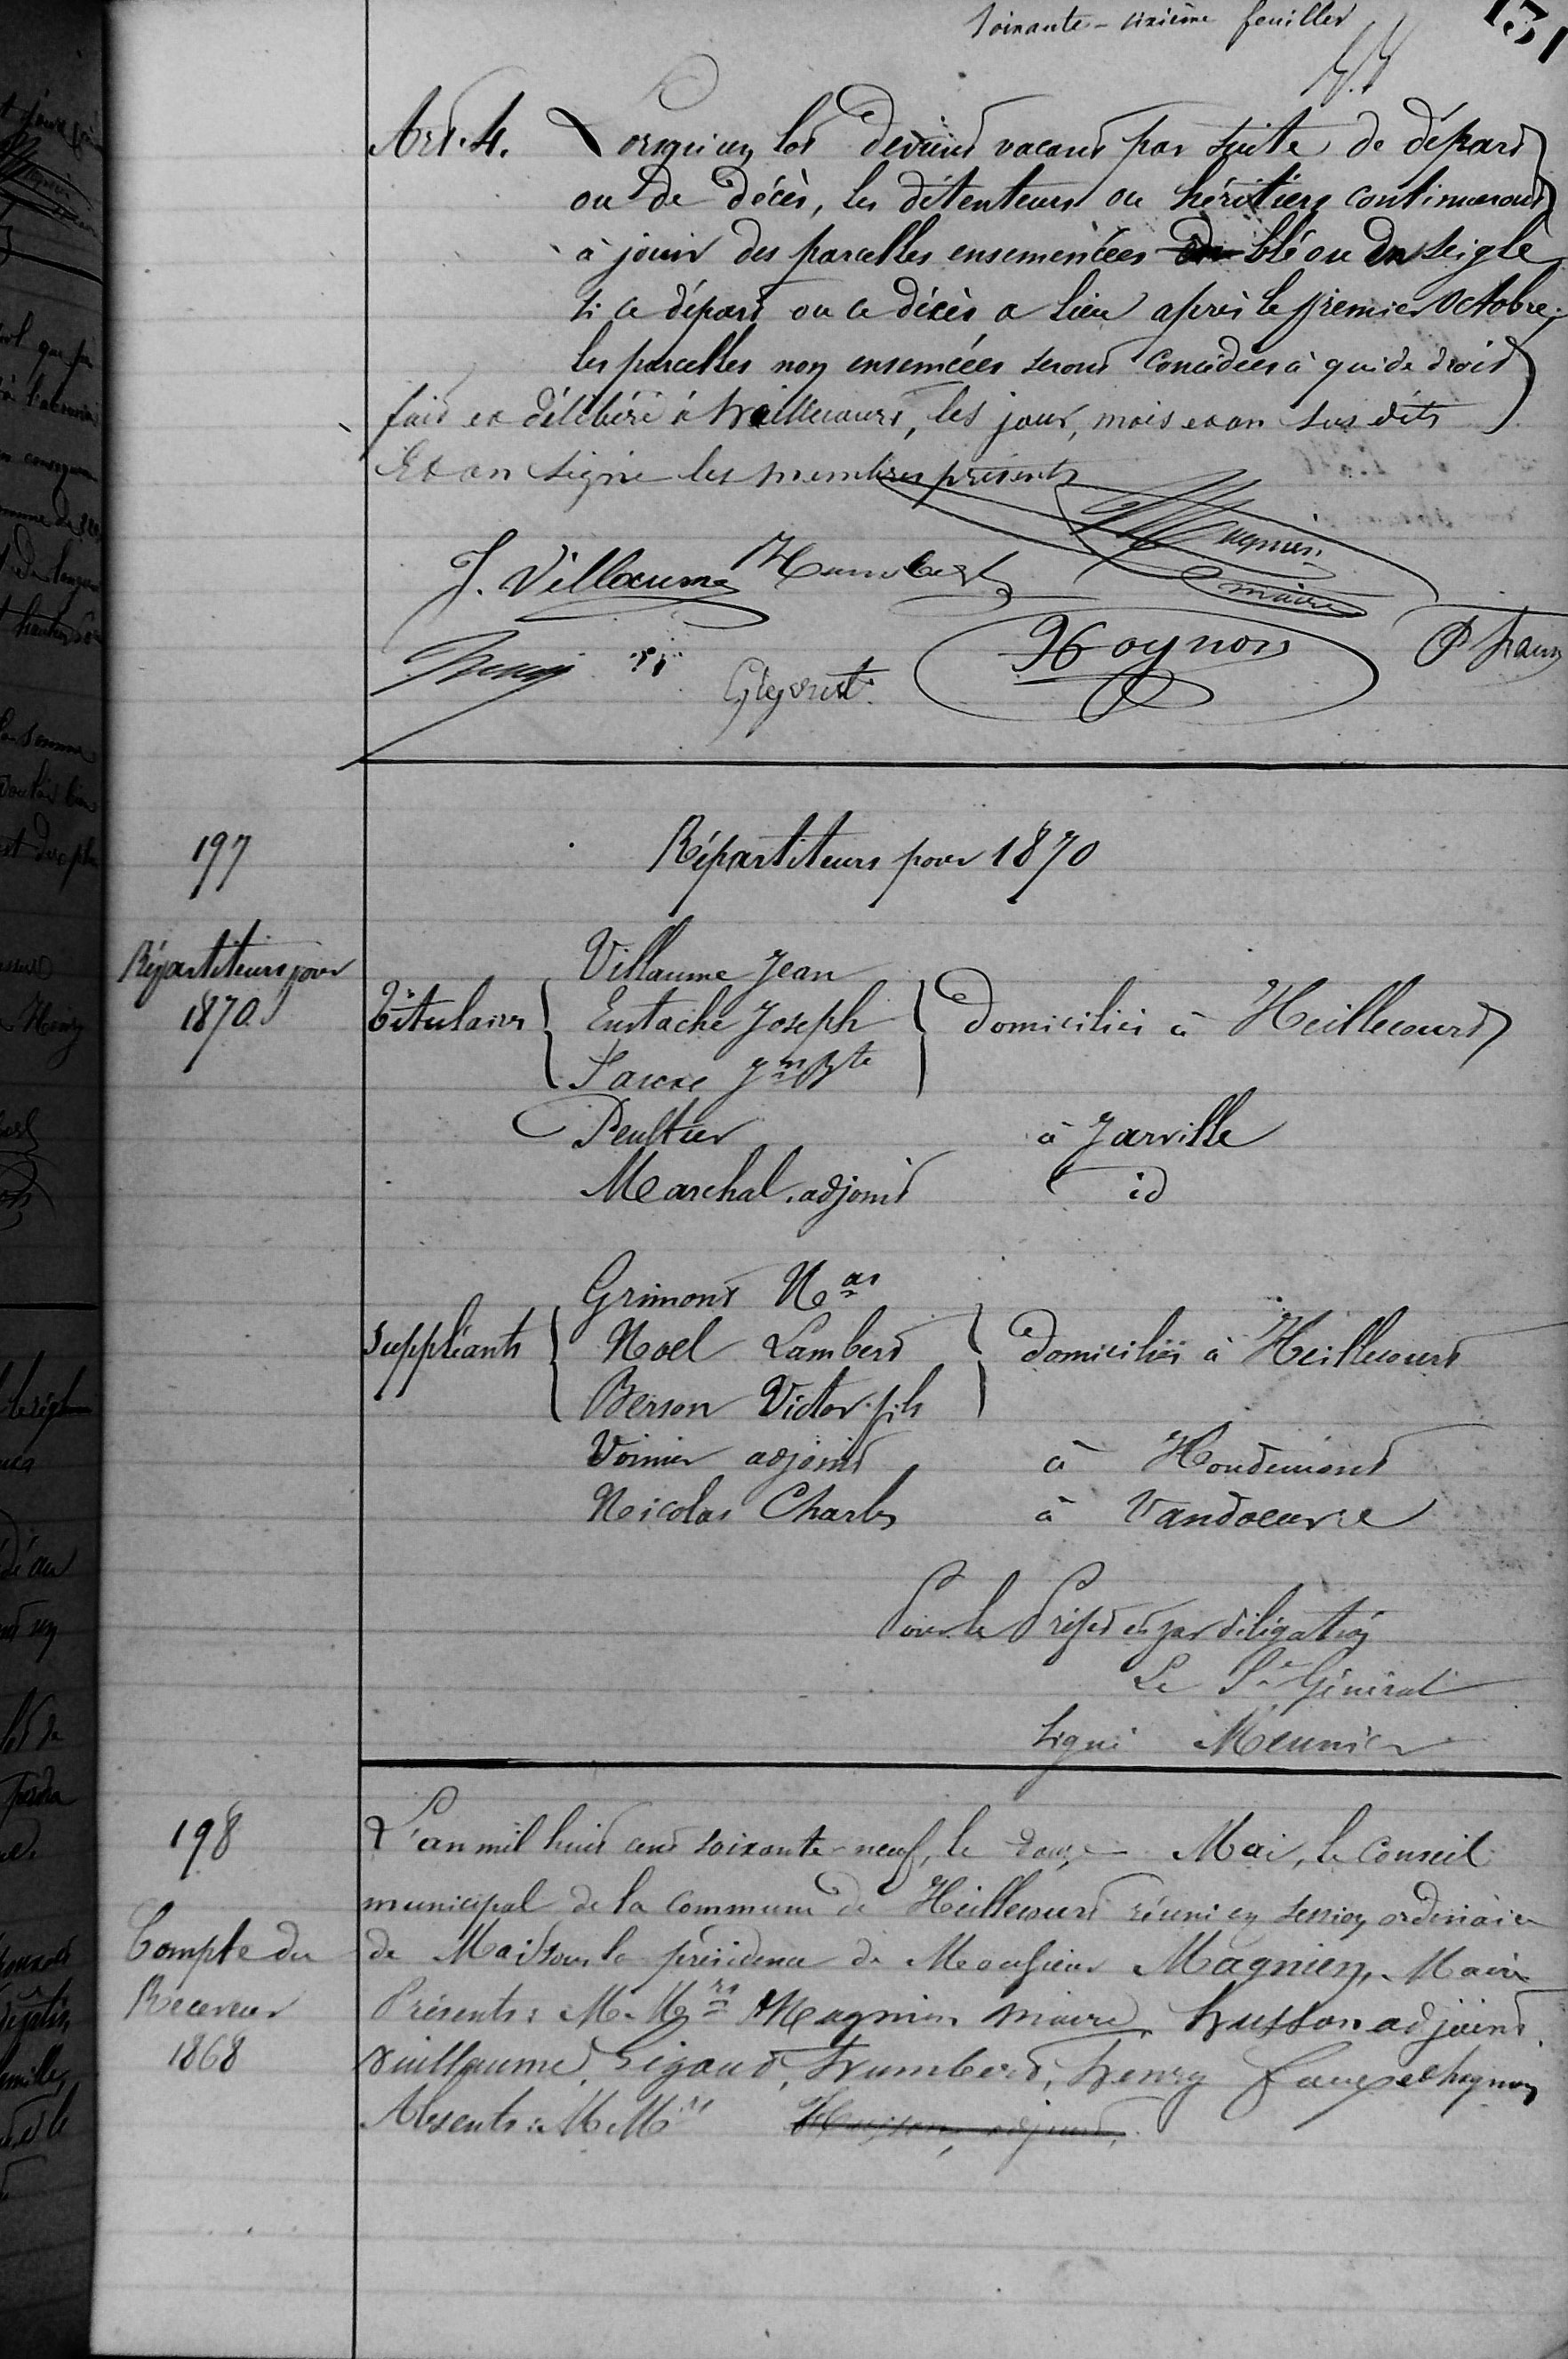 Soixante-sixième feuillet
131
Art. 4. Lorsqu'un lot devient vacant par suite de départ
ou de décès, les détenteurs ou héritiers continueront
à jouir des parcelles ensemencées en blé ou en seigle
si ce départ ou ce décès a lieu après le premier Octobre;
les parcelles non ensemcées seront concédées à qui de droit
fait et délibéré à heillecourt, les jour, mois et an sus dits
Et on signé les membres présents
Magnien
maire
J. Villaume Humbert
Henry
Hoynon
197
Répartiteurs pour 1870
Répartiteurs pour
1870
Villaume Jean
Titulaires Eustache Joseph domiciliés à Heillecourt
Jn Bte
Peultier à Jarville
Marchal adjoint id
Grimont Nas
Suppléants Noel Lambert domiciliés à Heillecourt
Berson Victor fils
Voinier adjoint à Houdemont
Nicolas Charles à Vandoeuvre
Pour le Préfet et par délégation
Le Sre Général
Signé Meunier
198
L'an mil huit cent soixante-neuf, le douze Mai, le Conseil
municipal de la commune de Heillecourt réuni en session ordinaire
Compte du
Receveur
1868
de Mai sous la présidence de Monsieur Magnien, Maire
Présents: M. Mrs Magnien maire, husson adjoint
Vuillaume, Gigout, humbert, henry et hognon
Absents: M Mrs Husson, adjoint,